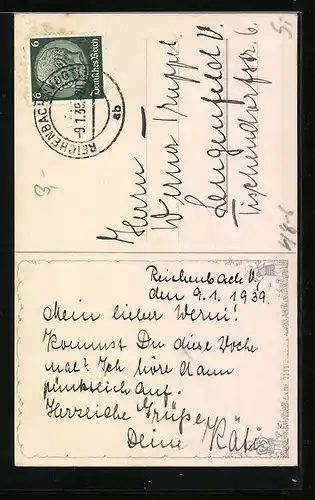 6 Deutsches Reich 6
REICHENBACH (VOGTL)
-9.1.39.
ab
Herrn
Werner Kruppel
Lengenfeld V.
Tischendorfstr. 6.
3,-
5,-
Reichenbach V.
den 9.1.1939.
Mein lieber Werni!
Kommst Du diese Woche
mal? Ich höre dann
pünktlich auf.
Herzliche Grüße,
Deine Käti